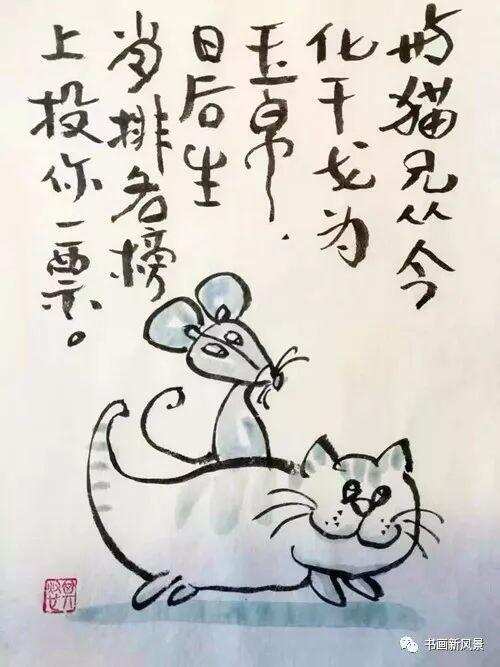 与猫兄从今
化干戈为
玉帛.
日后生
肖排名榜
上投你一票。
书画新风景